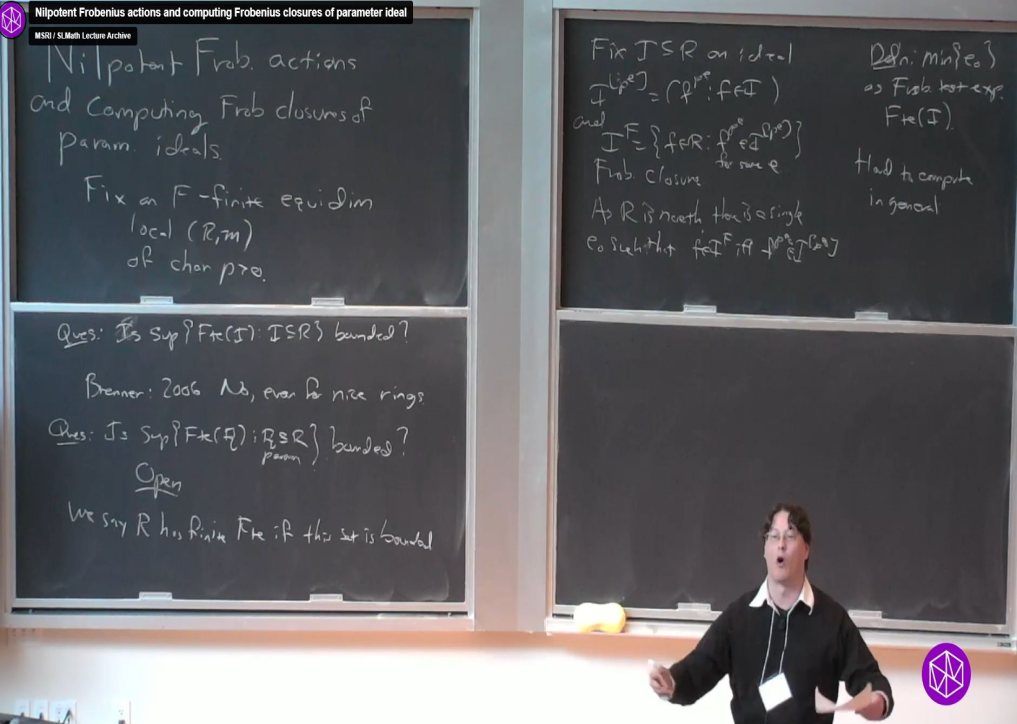 Nilpotent Frobenius actions and computing Frobenius closures of parameter ideal
MSRI / SLMath Lecture Archive
Nilpotent Frob. actions
and Computing Frob closures of
param. ideals.
Fix an F-finite equidim
local (R,m)
of char p>0.
Ques: Is Sup{Fte(I): I⊆R} bounded?
Brenner: 2006 No, even for nice rings.
Ques: Is Sup{Fte(q): q⊆R} bounded?
param
Open
We say R has finite Fte if this set is bounded
Fix I⊆R an ideal
I^[p^e] = (f^p^e : f∈I)
and
I^F = {f∈R : f^p^e ∈ I^[p^e]}
for some e
Frob. closure
As R is noeth there is a single
e₀ such that f∈I^F iff f^p^e₀ ∈ I^[p^e₀]
Defn: min{e₀}
as Frob. test exp.
Fte(I).
Hard to compute
in general